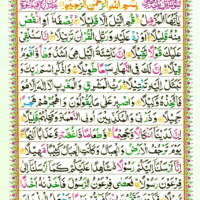 بِسْمِ اللّٰهِ الرَّحْمٰنِ الرَّحِيْمِ
يٰۤاَيُّهَا الْمُزَّمِّلُ قُمِ الَّيْلَ اِلَّا قَلِيْلًا نِّصْفَهٗۤ اَوِ انْقُصْ
مِنْهُ قَلِيْلًا اَوْ زِدْ عَلَيْهِ وَرَتِّلِ الْقُرْاٰنَ تَرْتِيْلًا اِنَّا سَنُلْقِيْ
عَلَيْكَ قَوْلًا ثَقِيْلًا اِنَّ نَاشِئَةَ الَّيْلِ هِيَ اَشَدُّ وَطْاً وَّاَقْوَمُ
قِيْلًا اِنَّ لَكَ فِي النَّهَارِ سَبْحًا طَوِيْلًا وَاذْكُرِ اسْمَ رَبِّكَ وَ
تَبَتَّلْ اِلَيْهِ تَبْتِيْلًا رَبُّ الْمَشْرِقِ وَالْمَغْرِبِ لَاۤ اِلٰهَ اِلَّا هُوَ
فَاتَّخِذْهُ وَكِيْلًا وَاصْبِرْ عَلٰى مَا يَقُوْلُوْنَ وَاهْجُرْهُمْ هَجْرًا
جَمِيْلًا وَذَرْنِيْ وَالْمُكَذِّبِيْنَ اُولِي النَّعْمَةِ وَمَهِّلْهُمْ قَلِيْلًا
اِنَّ لَدَيْنَاۤ اَنْكَالًا وَّجَحِيْمًا وَّطَعَامًا ذَا غُصَّةٍ وَّعَذَابًا اَلِيْمًا
يَوْمَ تَرْجُفُ الْاَرْضُ وَالْجِبَالُ وَكَانَتِ الْجِبَالُ كَثِيْبًا مَّهِيْلًا
اِنَّاۤ اَرْسَلْنَاۤ اِلَيْكُمْ رَسُوْلًا شَاهِدًا عَلَيْكُمْ كَمَاۤ اَرْسَلْنَاۤ اِلٰى
فِرْعَوْنَ رَسُوْلًا فَعَصٰى فِرْعَوْنُ الرَّسُوْلَ فَاَخَذْنٰهُ اَخْذًا